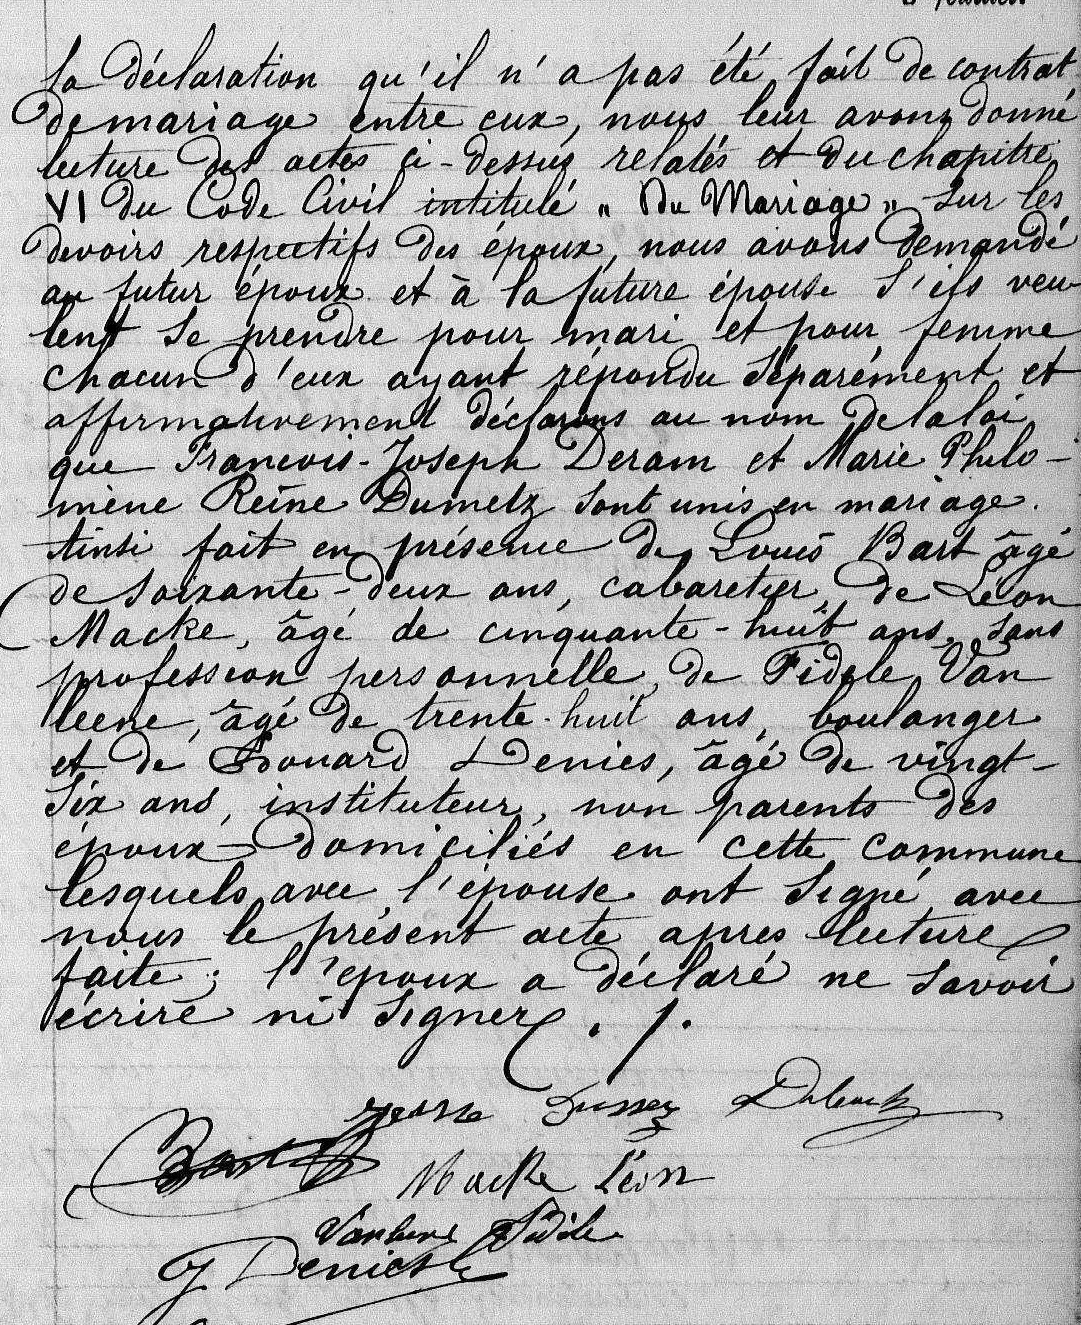 la déclaration qu'il n'a pas été fait de contrat
de mariage entre eux, nous leur avons donné
lecture des actes ci-dessus relatés et du chapitre
VI du Code Civil intitulé „ Du Mariage „ sur les
devoirs respectifs des époux, nous avons demandé
au futur époux et à la future épouse s'ils veu
lent se prendre pour mari et pour femme
chacun d'eux ayant répondu séparément et
affirmativement déclarons au nom de la loi
que François-Joseph Deram et Marie Philo-
mène Reine Dumetz sont unis en mariage.
Ainsi fait en présence de Louis Bart âgé
de soixante-deux ans, cabaretier, de Léon
Macke, âgé de cinquante-huit ans, sans
profession personnelle, de Fidèle Van
leene, âgé de trente-huit ans, boulanger
et de Edouard Denies, âgé de vingt-
six ans, instituteur, non parents des
époux domiciliés en cette commune
lesquels avec l'épouse ont signé avec
nous le présent acte apres lecture
faite; l'époux a déclaré ne savoir
écrire ni signer. /.
Bart
Macke Léon
Vanleene Fidèle
Denies